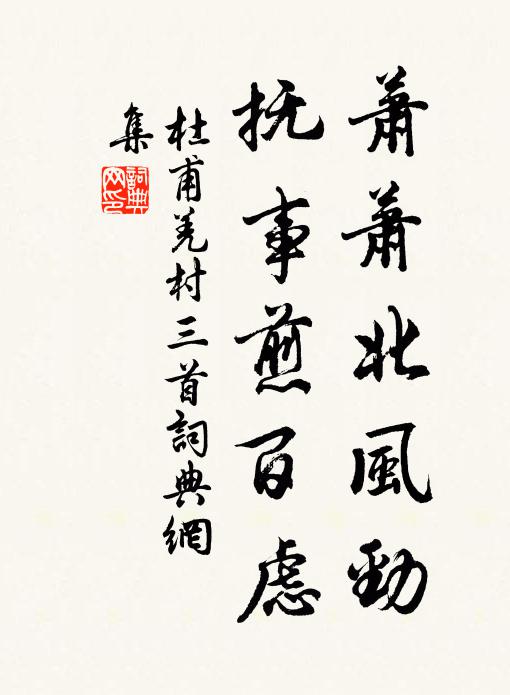 蕭蕭北風勁
抚事煎百慮
杜甫羌村三首詞典網
集
詞典
网印